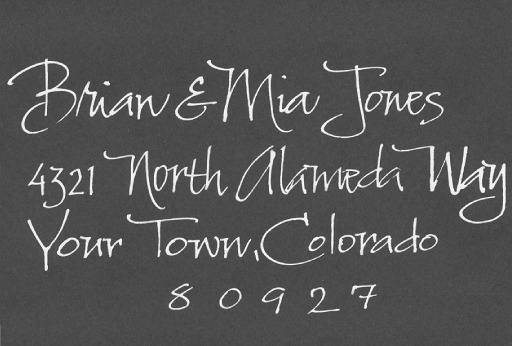 Brian & Mia Jones
4321 North Alameda Way
Your Town, Colorado
8 0 9 2 7